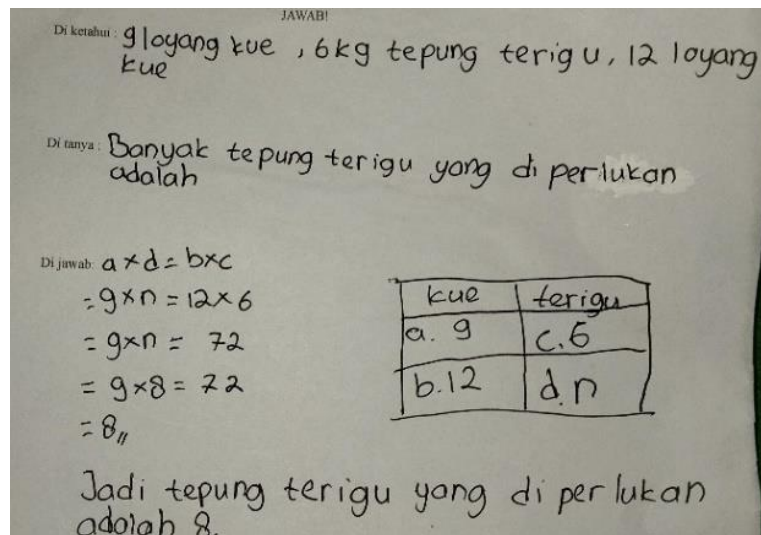 JAWAB!
Di ketahui : 9 loyang kue , 6kg tepung terigu, 12 loyang
kue
Di tanya : Banyak tepung terigu yang di perlukan
adalah
Di jawab: a x d = b x c
= 9 x n = 12 x 6
= 9 x n = 72
= 9 x 8 = 72
= 8,,
kue terigu
a. 9 c. 6
b. 12 d. n
Jadi tepung terigu yang di perlukan
adalah 8.